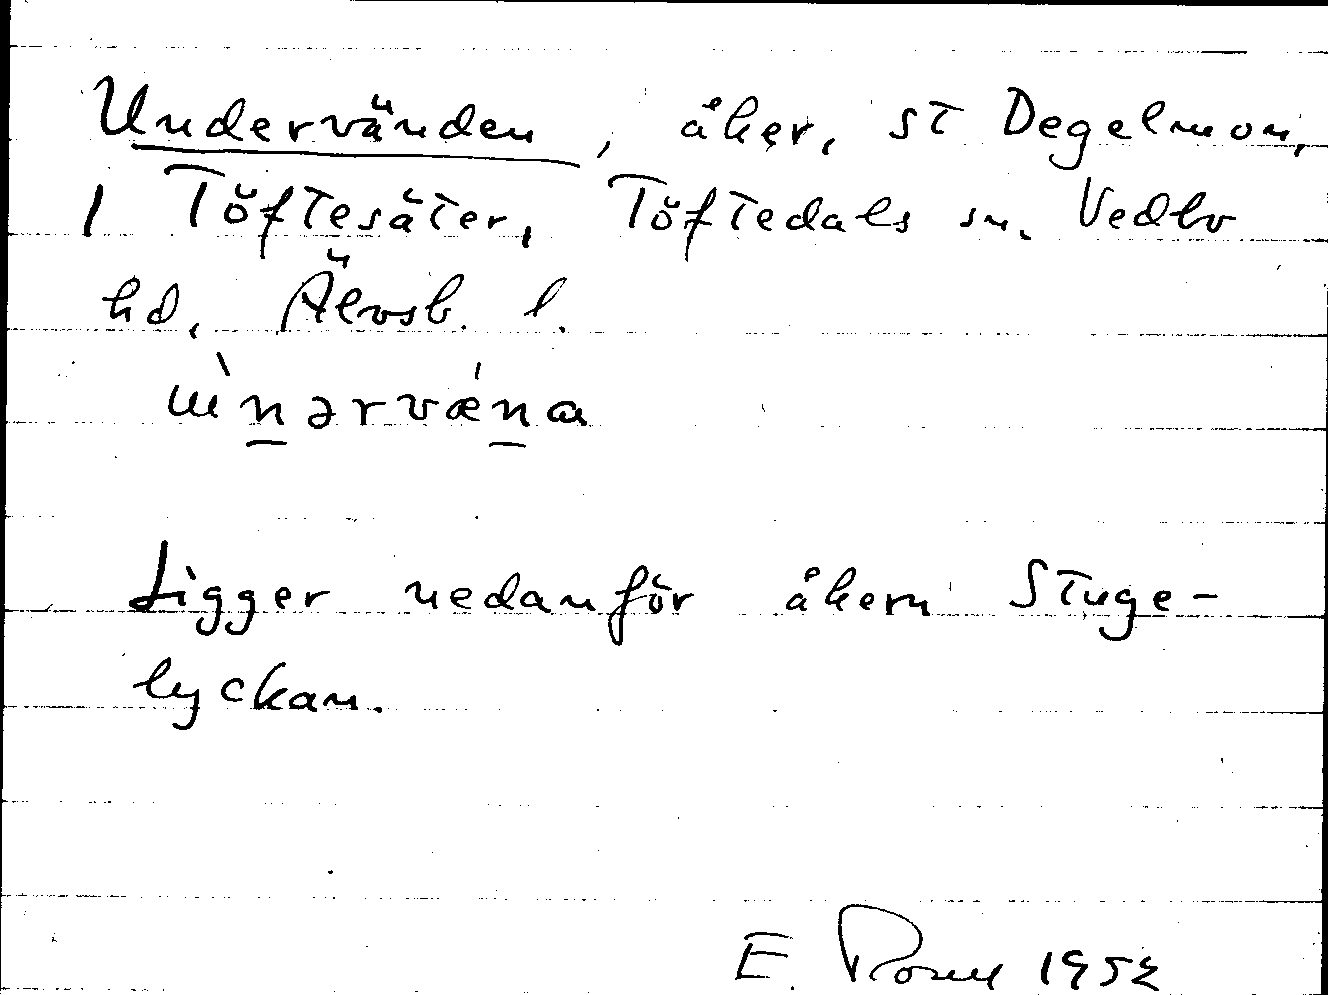 Undervänden, åker, st Degelmon,
1 Töftesäter, Töftedals sn. Vedbo
hd. Älvsb. l.
ɯ̀n̲ərvǽn̲a
Ligger nedanför åkern Stuge-
lyckan.
E. 1952